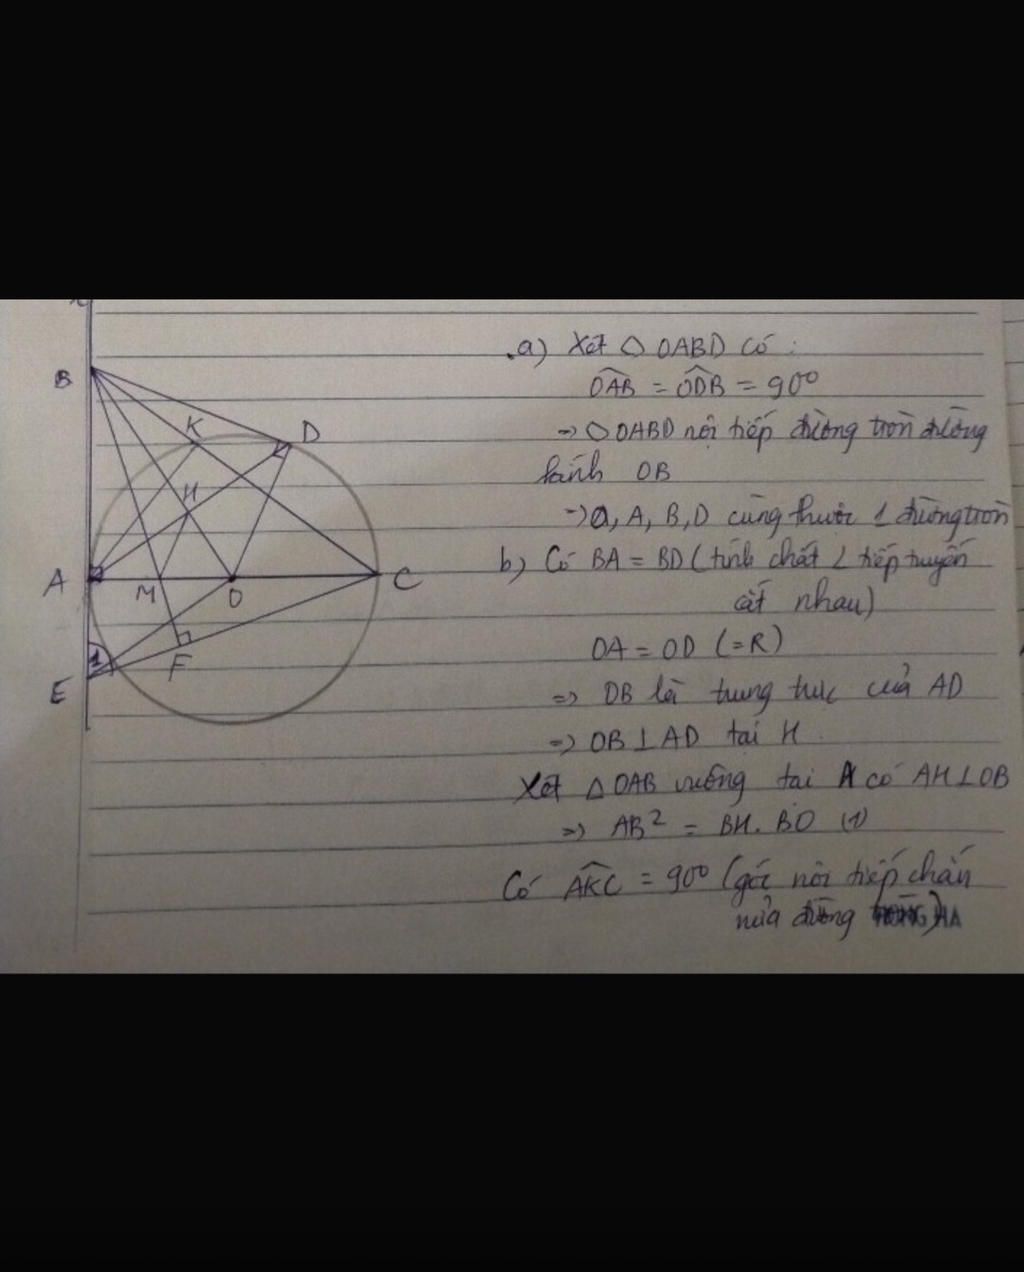 B
K
D
H
A
M
O
C
1
F
E
a) Xét ◇ OABD có :
OAB = ODB = 90°
→ ◇ OABD nội tiếp đường tròn đường
kính OB
→ O, A, B, D cùng thuộc 1 đường tròn
b) Có BA = BD ( tính chất 2 tiếp tuyến
cắt nhau)
OA = OD (=R)
=> OB là trung trực của AD
=> OB ⊥ AD tại H
Xét △ OAB vuông tại A có AH ⊥ OB
=> AB² = BH. BO (1)
Có AKC = 90° (góc nội tiếp chắn
nửa đường )